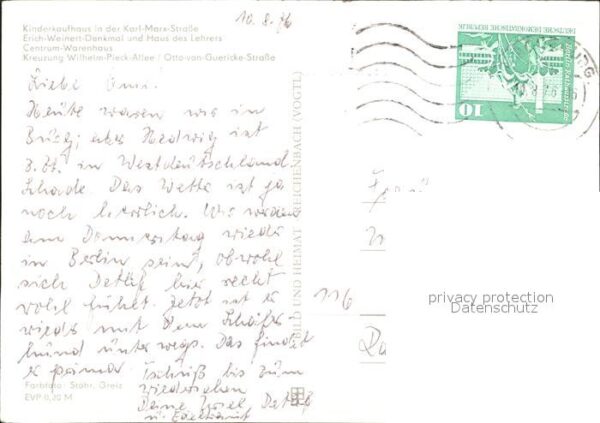 10.8.76
Kinderkaufhaus in der Karl-Marx-Straße
Erich-Weinert-Denkmal und Haus des Lehrers
Centrum-Warenhaus
Kreuzung Wilhelm-Pieck-Allee / Otto-von-Guericke-Straße
DEUTSCHE DEMOKRATISCHE REPUBLIK
Berlin
10
Liebe Omi!
Heute waren wir in
Burg; aber Hedwig ist
z.Zt. in Westdeutschland
Schade. Das Wetter ist ja
noch herrlich. Wir werden
am Donnerstag wieder
in Berlin sein, obwohl
sich Detlef hier recht
wohl fühlt. Jetzt ist er
wieder mit dem Schäfer-
hund unterwegs. Das findet
er prima. Tschüß bis zum
Wiedersehen
Deine Detlef
u.
BILD UND HEIMAT REICHENBACH (VOGTL)
116
privacy protection
Datenschutz
Farbfoto: Stöhr, Greiz
EVP 0,20 M